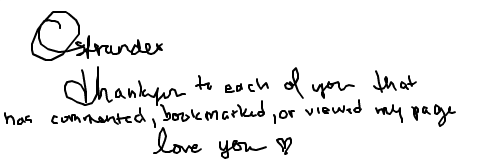 Ostrandex
Thankyou to each of you that
has commented, bookmarked, or viewed my page
love you ♡